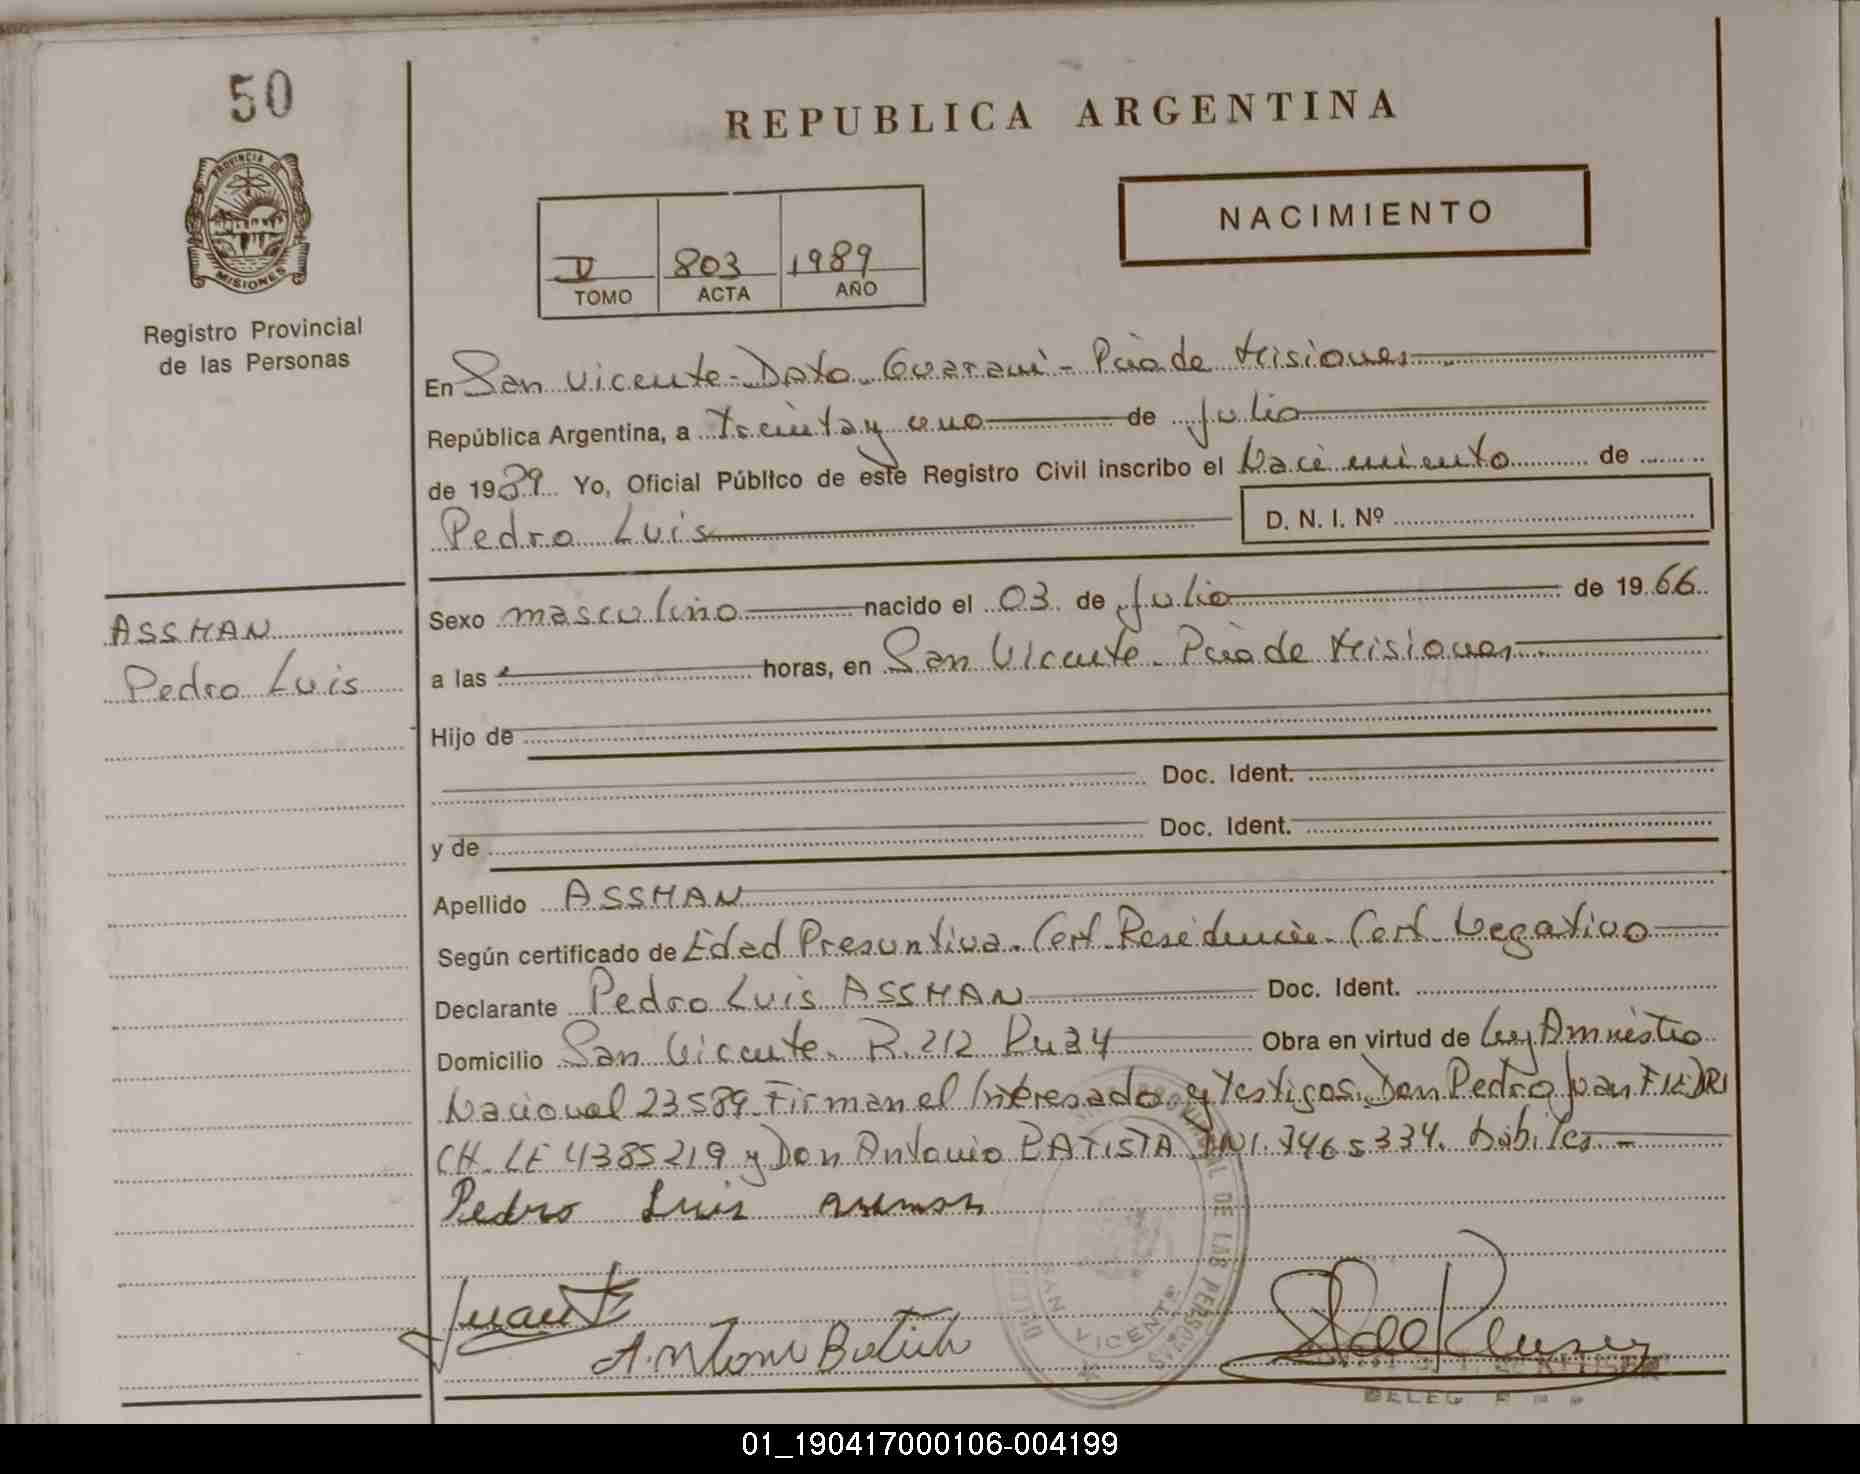 50
REPUBLICA ARGENTINA
PROVINCIA DE
MISIONES
NACIMIENTO
803 1989
TOMO ACTA AÑO
Registro Provincial
de las Personas
En San Vicente - Dpto. Guaraní - Pcia de Misiones
República Argentina, a treinta y uno de Julio
de 1989. Yo, Oficial Público de este Registro Civil inscribo el Nacimiento de
Pedro Luis
D. N. I. Nº
ASSMAN
Pedro Luis
Sexo masculino nacido el 03 de Julio de 1966
a las horas, en San Vicente. Pcia de Misiones
Hijo de
Doc. Ident.
y de Doc. Ident.
Apellido ASSMAN
Según certificado de Edad Presuntiva. Cert. Residencia. Cert. Negativo
Declarante Pedro Luis ASSMAN Doc. Ident.
Domicilio San Vicente. R. 212 Obra en virtud de Ley Amnistia
Nacional 23589. Firman el Interesado y Testigos. Don Pedro Juan FIEDRI
CH. LE 4385219 y Don Antonio BATISTA DNI. 7465334. Hábiles
Pedro Luis
Antonio
DE LAS PERSONAS
SAN VICENTE
01_190417000106-004199